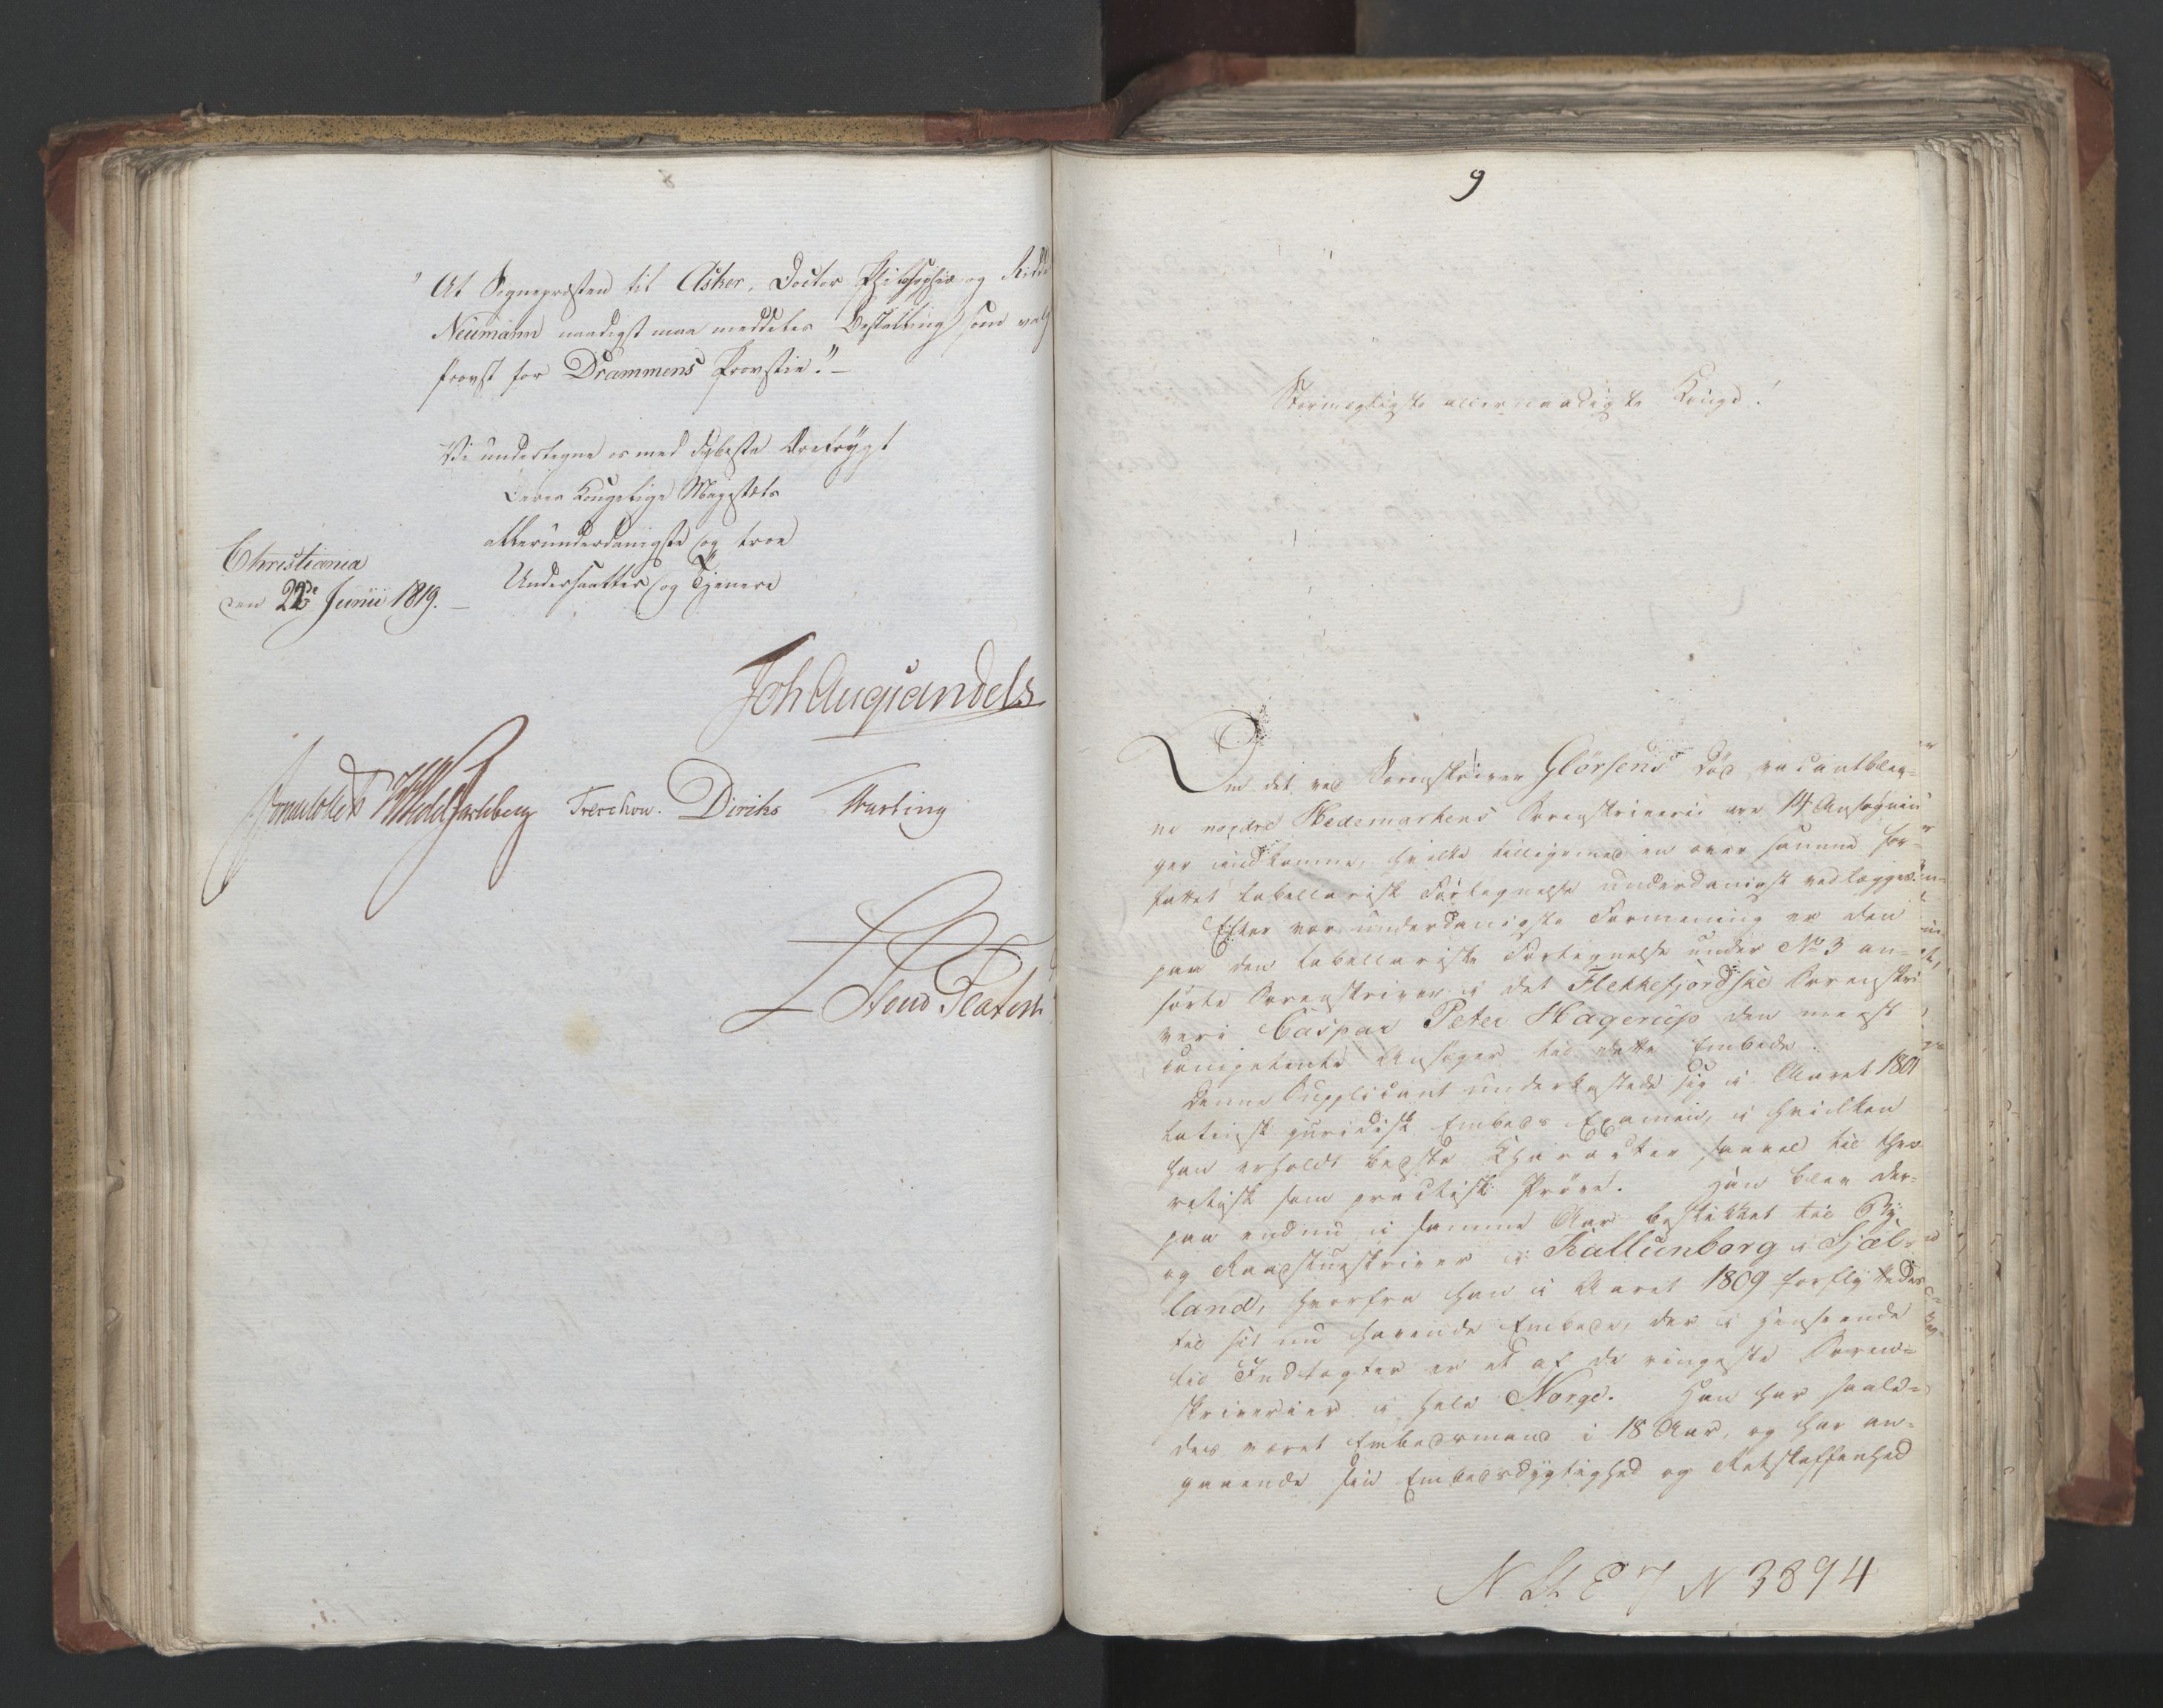 "At Sognepræsten til Asker, Doctor Philosophiæ og Ridder
Neumann naadigst maa meddeles Bestalling som valgt
Provst for Drammens Provstie." —
Vi undertegne os med dybeste Ærefrygt
Deres Kongelige Majestæts
allerunderdanigste og troe
Undersaatter og Tjenere
Christiania
den 22de Junii 1819. —
Joh Aug Sandels
Sommerhielm Wedel Jarlsberg Treschow. Diriks Hartting
9
Stormægtigste allernaadigste Konge!
Om det ved Sorenskriver Glørsens Død vacantblev=
ne nordre Hedemarkens Sorenskriverie ere 14 Ansøgnin
ger indkomne, hvilke tilligemed en over samme for=
fattet tabellarisk Fortegnelse underdanigst vedlægges.
Efter vor underdanigste Formening er den
paa den tabellariske Fortegnelse under No 3 an=
førte Sorenskriver i det Flekkefjordske Sorenskri
veri Caspar Peter Hagerup den meest
competente Ansøger til dette Embede.
Denne Supplicant underkastede sig i Aaret 1801
latinsk juridisk Embeds Examen, i hvilken
han erholdt bedste Character saavel til theo
retisk som practisk Prøve. Han blev der=
paa endnu i samme Aar beskikket til By
og Raadstueskriver i Kallunborg i Sjæl=
land, hvorfra han i Aaret 1809 forflyttedes
til sit nu havende Embede, der i Henseende
til Indtægter er et af de ringeste Soren=
skriverier i hele Norge. Han har saale=
des været Embedsmand i 18 Aar, og har an=
gaaende sin Embedsdygtighed og Retskaffenhed
N St E 7 N 3894